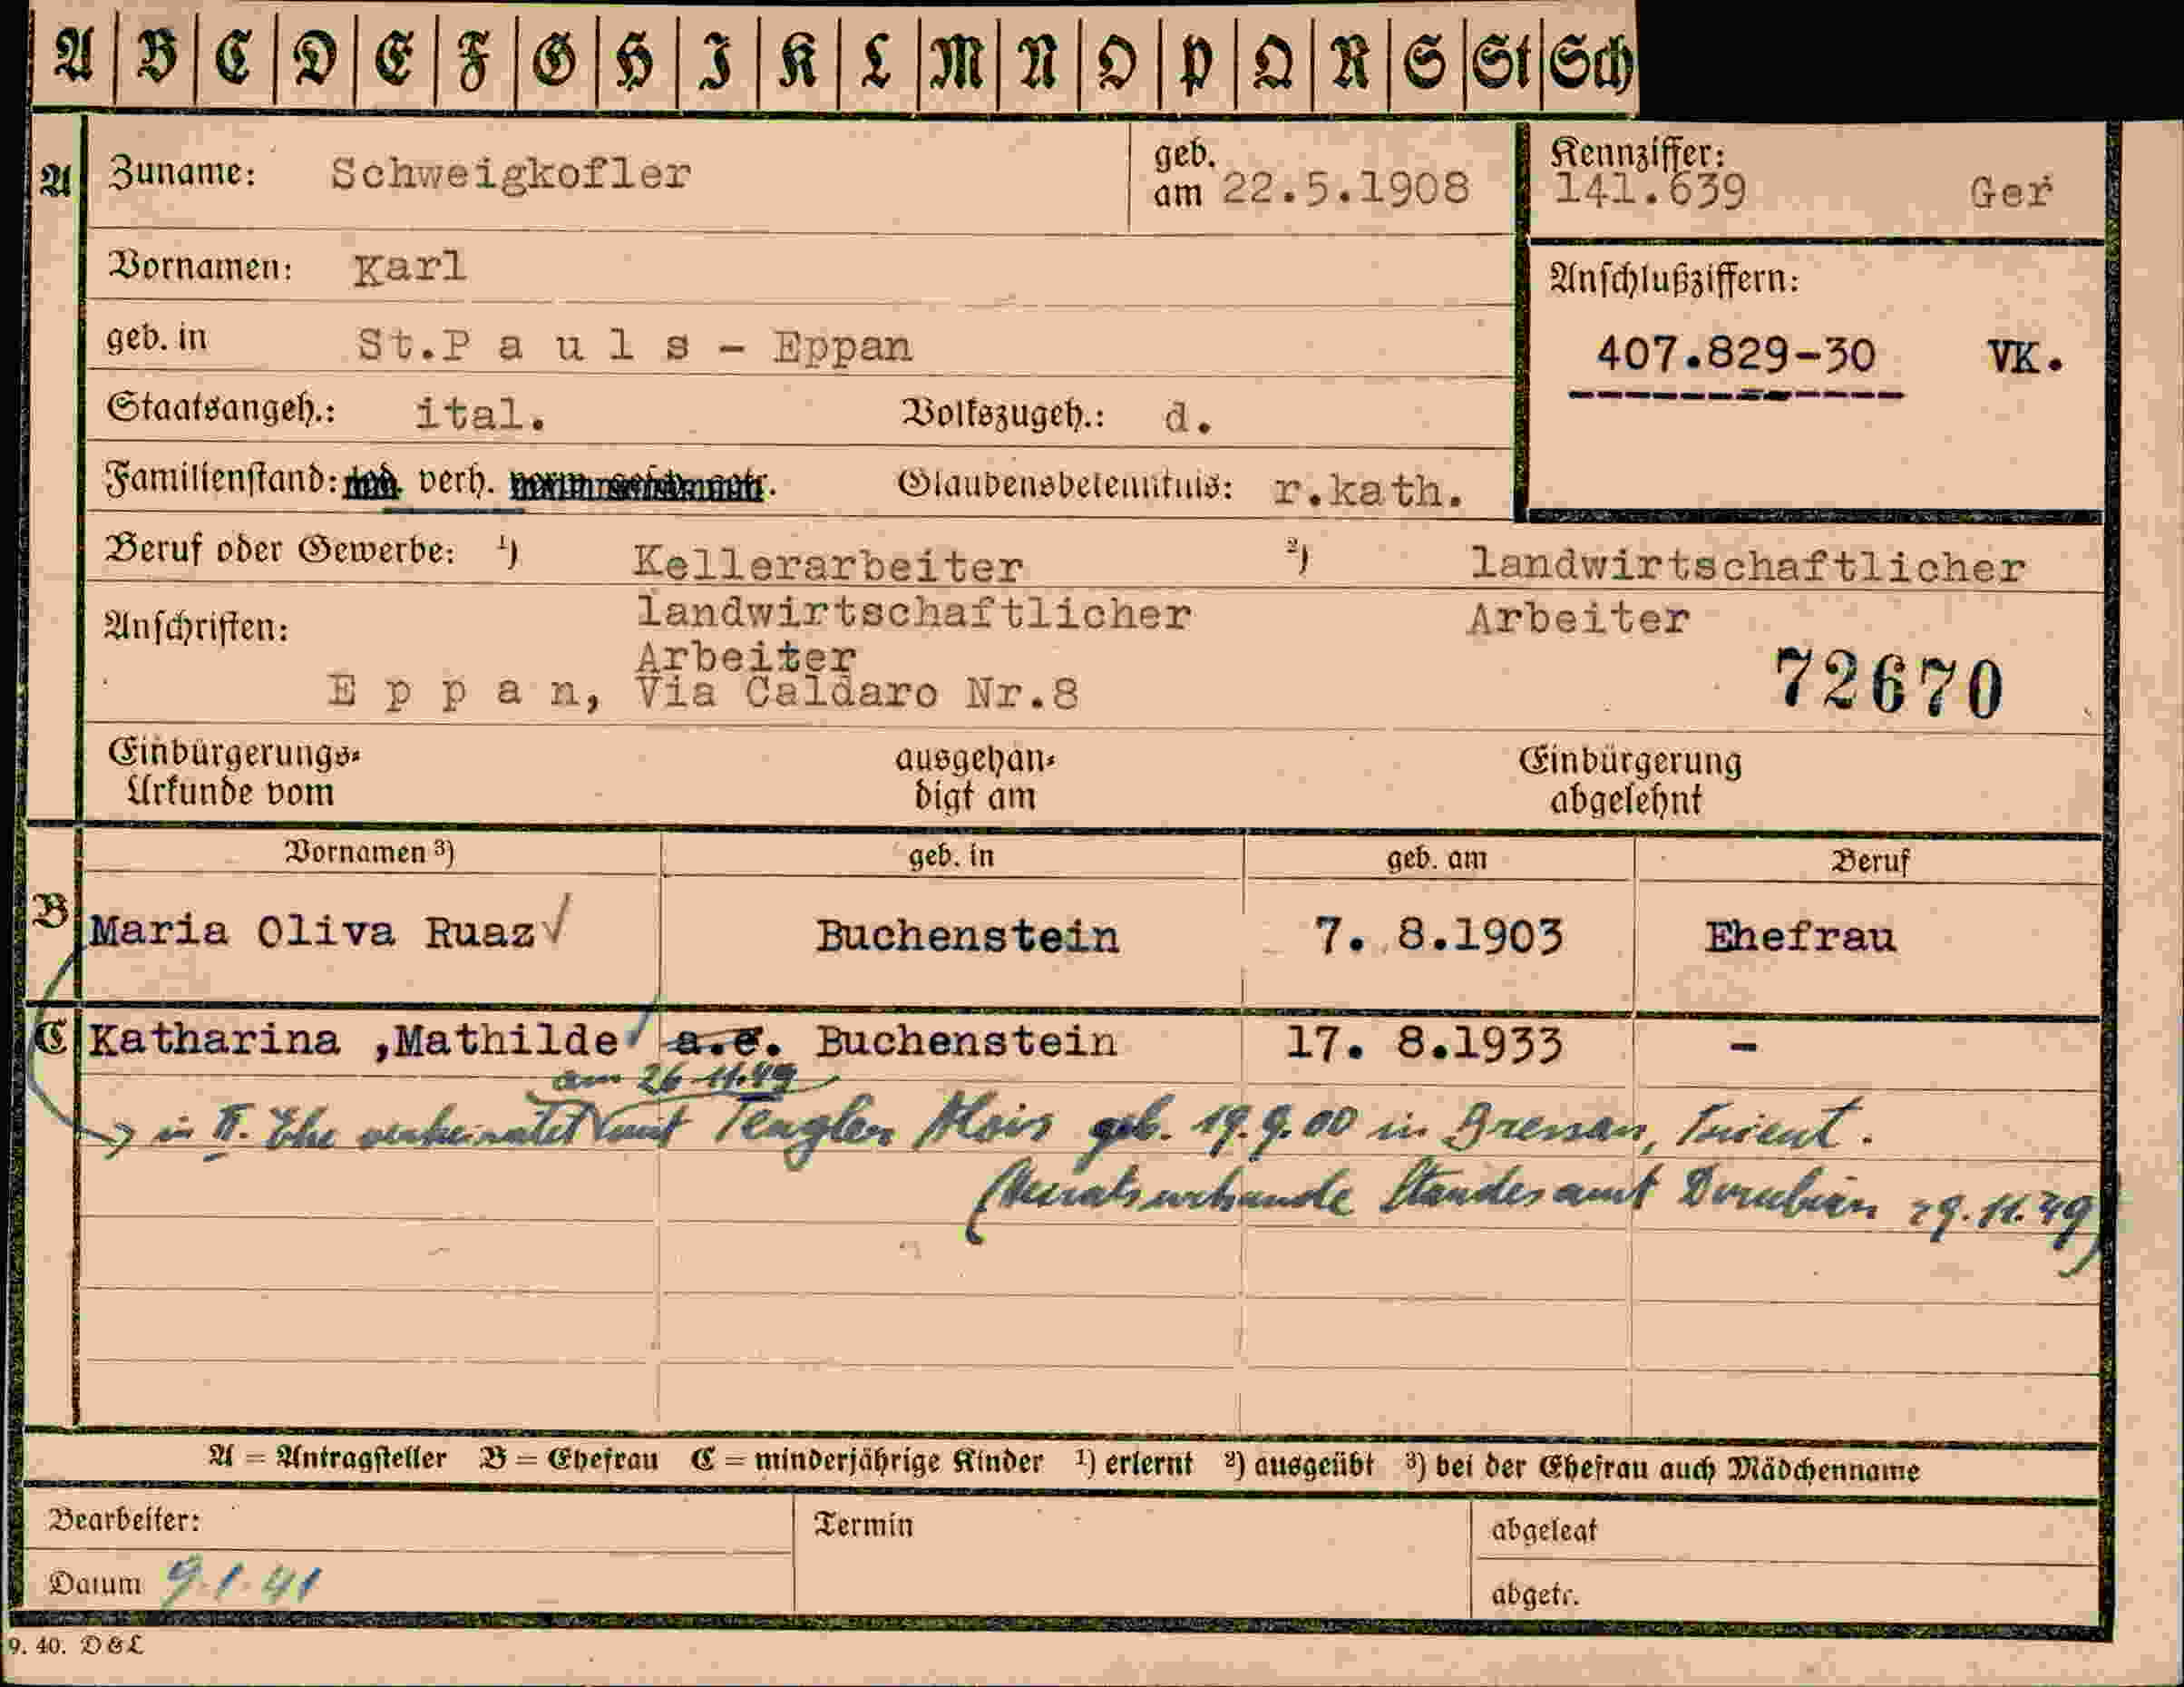 A B C D E F G H I K L M N O P Q R S St Sch
A Zuname: Schweigkofler geb. am 22.5.1908
Kennziffer: 141.639 Ger
Vornamen: Karl
Anschlußziffern:
geb. in St.P a u l s - Eppan
407.829-30 VK.
Staatsangeh.: ital. Volkszugeh.: d.
Familienstand: verh. Glaubensbekenntnis: r.kath.
Beruf oder Gewerbe: 1) Kellerarbeiter 2) landwirtschaftlicher
landwirtschaftlicher Arbeiter
Anschriften:
Arbeiter
72670
E p p a n, Via Caldaro Nr.8
Einbürgerungs- ausgehän- Einbürgerung
Urkunde vom digt am abgelehnt
Vornamen 3) geb. in geb. am Beruf
B Maria Oliva Ruaz Buchenstein 7. 8.1903 Ehefrau
C Katharina ,Mathilde a.e. Buchenstein 17. 8.1933 -
am 26.11.49
→ in II. Ehe verheiratet mit Tengler Alois geb. 19.9.00 in Trient.
(Heiratsurkunde Standesamt Dornbirn 29.11.49)
A = Antragsteller B = Ehefrau C = minderjährige Kinder 1) erlernt 2) ausgeübt 3) bei der Ehefrau auch Mädchenname
Bearbeiter: Termin abgelegt
Datum 9.1.41 abgetr.
9. 40. D&L